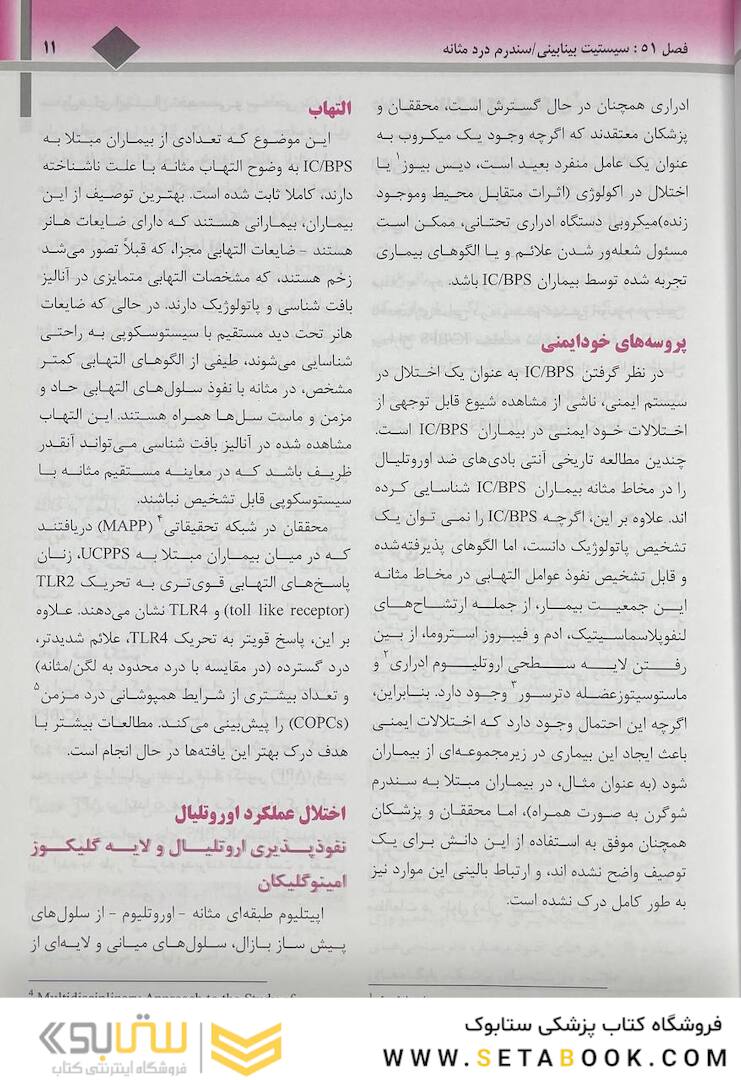 فصل ۵۱: سیستیت بینابینی/سندرم درد مثانه
۱۱
ادراری همچنان در حال گسترش است، محققان و
پزشکان معتقدند که اگرچه وجود یک میکروب به
عنوان یک عامل منفرد بعید است، دیس بیوز۱ یا
اختلال در اکولوژی (اثرات متقابل محیط وموجود
زنده)میکروبی دستگاه ادراری تحتانی، ممکن است
مسئول شعله‌ور شدن علائم و یا الگوهای بیماری
تجربه شده توسط بیماران IC/BPS باشد.
پروسه‌های خودایمنی
در نظر گرفتن IC/BPS به عنوان یک اختلال در
سیستم ایمنی، ناشی از مشاهده شیوع قابل توجهی از
اختلالات خود ایمنی در بیماران IC/BPS است.
چندین مطالعه تاریخی آنتی بادی‌های ضد اوروتلیال
را در مخاط مثانه بیماران IC/BPS شناسایی کرده
اند. علاوه بر این، اگرچه IC/BPS را نمی توان یک
تشخیص پاتولوژیک دانست، اما الگوهای پذیرفته‌شده
و قابل تشخیص نفوذ عوامل التهابی در مخاط مثانه
این جمعیت بیمار، از جمله ارتشاح‌های
لنفوپلاسماسیتیک، ادم و فیبروز استروما، از بین
رفتن لایه سطحی اروتلیوم ادراری۲ و
ماستوسیتوزعضله دترسور۳ وجود دارد. بنابراین،
اگرچه این احتمال وجود دارد که اختلالات ایمنی
باعث ایجاد این بیماری در زیرمجموعه‌ای از بیماران
شود (به عنوان مثال، در بیماران مبتلا به سندرم
شوگرن به صورت همراه)، اما محققان و پزشکان
همچنان موفق به استفاده از این دانش برای یک
توصیف واضح نشده اند، و ارتباط بالینی این موارد نیز
به طور کامل درک نشده است.
التهاب
این موضوع که تعدادی از بیماران مبتلا به
IC/BPS به وضوح التهاب مثانه با علت ناشناخته
دارند، کاملا ثابت شده است. بهترین توصیف از این
بیماران، بیمارانی هستند که دارای ضایعات هانر
هستند - ضایعات التهابی مجزا، که قبلاً تصور می‌شد
زخم هستند، که مشخصات التهابی متمایزی در آنالیز
بافت شناسی و پاتولوژیک دارند. در حالی که ضایعات
هانر تحت دید مستقیم با سیستوسکوپی به راحتی
شناسایی می‌شوند، طیفی از الگوهای التهابی کمتر
مشخص، در مثانه با نفوذ سلول‌های التهابی حاد و
مزمن و ماست سل‌ها همراه هستند. این التهاب
مشاهده شده در آنالیز بافت شناسی می‌تواند آنقدر
ظریف باشد که در معاینه مستقیم مثانه با
سیستوسکوپی قابل تشخیص نباشند.
محققان در شبکه تحقیقاتی۴ (MAPP) دریافتند
که در میان بیماران مبتلا به UCPPS، زنان
پاسخ‌های التهابی قوی‌تری به تحریک TLR2
(toll like receptor) و TLR4 نشان می‌دهند. علاوه
بر این، پاسخ قویتر به تحریک TLR4، علائم شدیدتر،
درد گسترده (در مقایسه با درد محدود به لگن/مثانه)
و تعداد بیشتری از شرایط همپوشانی درد مزمن۵
(COPCs) را پیش‌بینی می‌کند. مطالعات بیشتر با
هدف درک بهتر این یافته‌ها در حال انجام است.
اختلال عملکرد اوروتلیال
نفوذپذیری اروتلیال و لایه گلیکوز
امینوگلیکان
اپیتلیوم طبقه‌ای مثانه - اوروتلیوم - از سلول‌های
پیش ساز بازال، سلول‌های میانی و لایه‌ای از
فروشگاه کتاب پزشکی ستابوک
WWW.SETABOOK.COM
ستابوک
فروشگاه اینترنتی کتاب